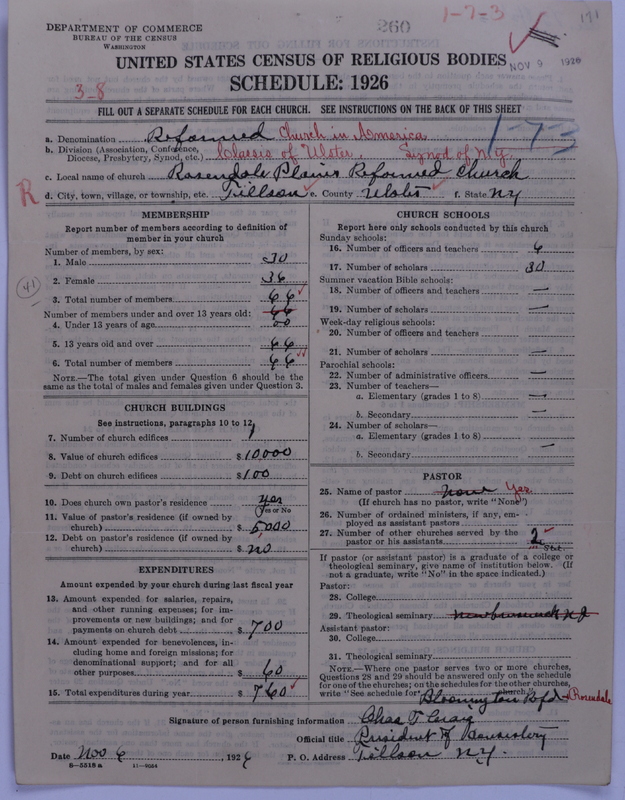 DEPARTMENT OF COMMERCE
BUREAU OF THE CENSUS
WASHINGTON
260
1-7-3
171
UNITED STATES CENSUS OF RELIGIOUS BODIES
NOV 9 1926
SCHEDULE: 1926
3-8
FILL OUT A SEPARATE SCHEDULE FOR EACH CHURCH. SEE INSTRUCTIONS ON THE BACK OF THIS SHEET
a. Denomination Reformed Church in America
1-7-3
b. Division (Association, Conference, Diocese, Presbytery, Synod, etc.) Classis of Ulster, Synod of N.Y.
c. Local name of church Rosendale Plains Reformed Church
R
d. City, town, village, or township, etc. Tillson e. County Ulster f. State NY
MEMBERSHIP
Report number of members according to definition of
member in your church
Number of members, by sex:
1. Male 30
2. Female 36
41
3. Total number of members 66
Number of members under and over 13 years old: 66
4. Under 13 years of age 00
5. 13 years old and over 66
6. Total number of members 66
NOTE.—The total given under Question 6 should be the
same as the total of males and females given under Question 3.
CHURCH BUILDINGS
See instructions, paragraphs 10 to 12
7. Number of church edifices 1
8. Value of church edifices $10,000
9. Debt on church edifices $100
10. Does church own pastor's residence yes
(Yes or No)
11. Value of pastor's residence (if owned by
church) $5,000
12. Debt on pastor's residence (if owned by
church) $ no
EXPENDITURES
Amount expended by your church during last fiscal year
13. Amount expended for salaries, repairs,
and other running expenses; for im-
provements or new buildings; and for
payments on church debt $700
14. Amount expended for benevolences, in-
cluding home and foreign missions; for
denominational support; and for all
other purposes $60
15. Total expenditures during year $760
CHURCH SCHOOLS
Report here only schools conducted by this church
Sunday schools:
16. Number of officers and teachers 6
17. Number of scholars 30
Summer vacation Bible schools:
18. Number of officers and teachers —
19. Number of scholars —
Week-day religious schools:
20. Number of officers and teachers
21. Number of scholars —
Parochial schools:
22. Number of administrative officers —
23. Number of teachers—
a. Elementary (grades 1 to 8) —
b. Secondary —
24. Number of scholars—
a. Elementary (grades 1 to 8) —
b. Secondary
PASTOR
25. Name of pastor none Yes
(If church has no pastor, write "None")
26. Number of ordained ministers, if any, em-
ployed as assistant pastors
27. Number of other churches served by the
pastor or his assistants 2
If pastor (or assistant pastor) is a graduate of a college or
theological seminary, give name of institution below. (If
not a graduate, write "No" in the space indicated.)
Pastor:
28. College
29. Theological seminary New Brunswick N J
Assistant pastor:
30. College
31. Theological seminary
NOTE.—Where one pastor serves two or more churches,
Questions 28 and 29 should be answered only on the schedule
for one of the churches; on the schedules for the other churches,
write "See schedule for Bloomington Rfd church." Rosendale
Signature of person furnishing information Chas T.
Official title President of Consistory
Date Nov 6 1926 P. O. Address Tillson NY.
8-5518 a 11-9054